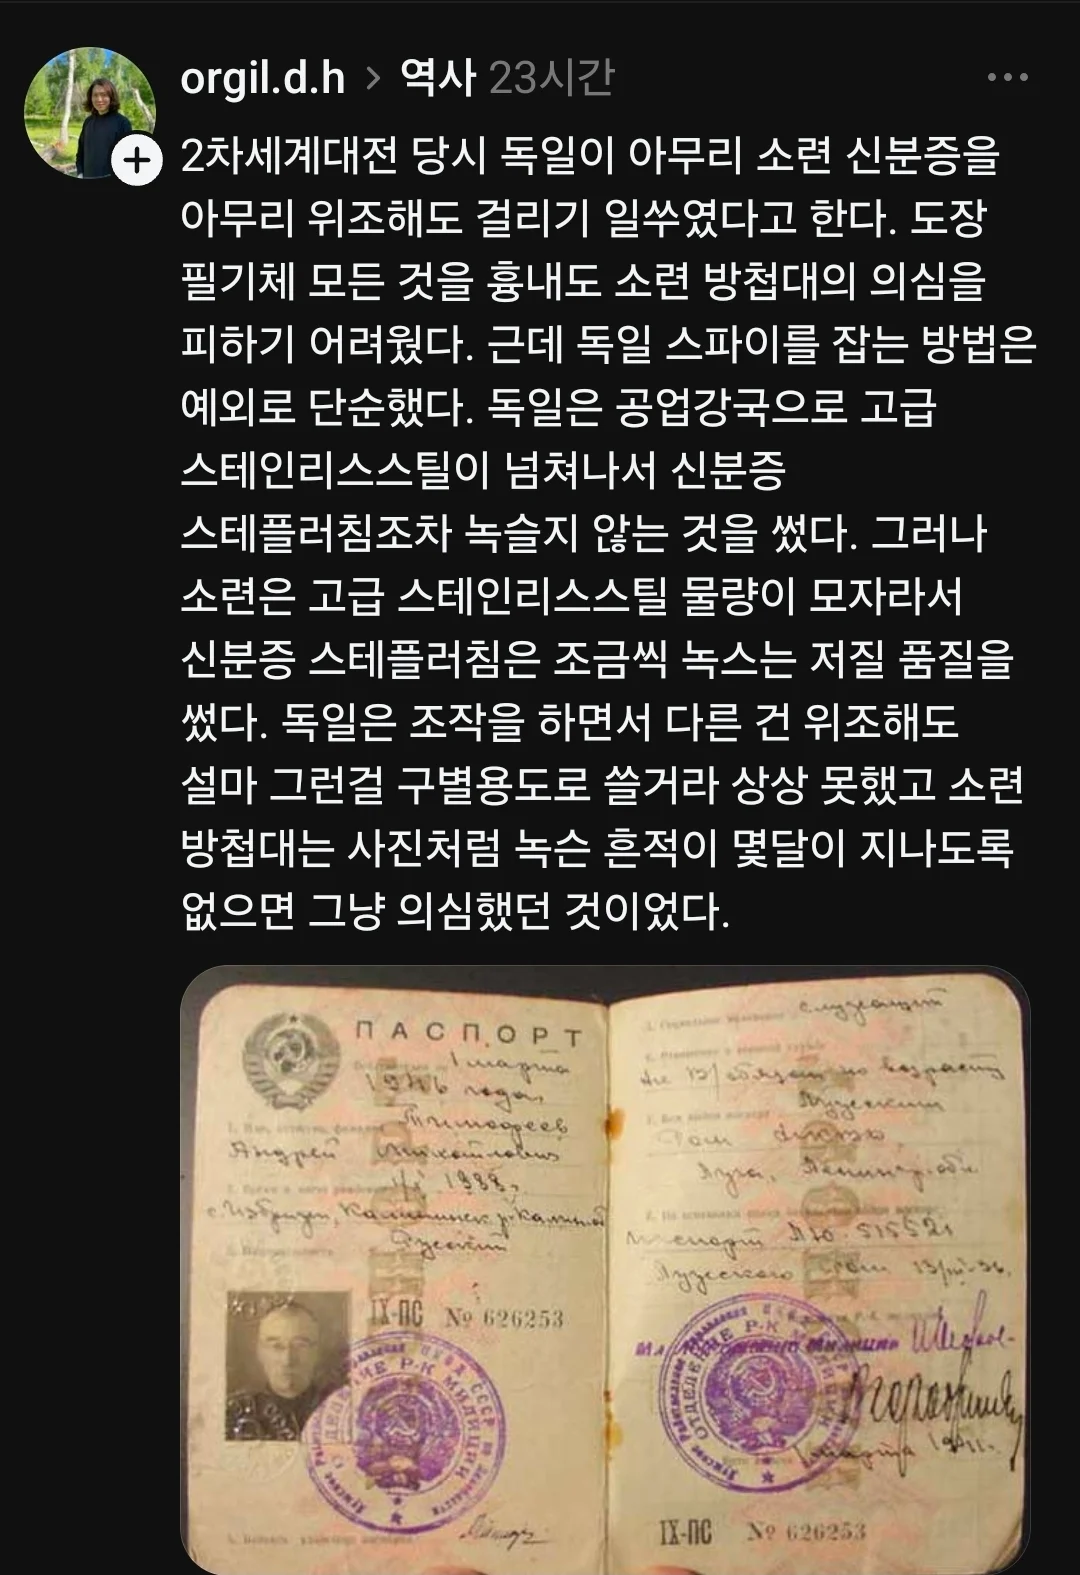 orgil.d.h > 역사 23시간
2차세계대전 당시 독일이 아무리 소련 신분증을
아무리 위조해도 걸리기 일쑤였다고 한다. 도장
필기체 모든 것을 흉내도 소련 방첩대의 의심을
피하기 어려웠다. 근데 독일 스파이를 잡는 방법은
예외로 단순했다. 독일은 공업강국으로 고급
스테인리스스틸이 넘쳐나서 신분증
스테플러침조차 녹슬지 않는 것을 썼다. 그러나
소련은 고급 스테인리스스틸 물량이 모자라서
신분증 스테플러침은 조금씩 녹스는 저질 품질을
썼다. 독일은 조작을 하면서 다른 건 위조해도
설마 그런걸 구별용도로 쓸거라 상상 못했고 소련
방첩대는 사진처럼 녹슨 흔적이 몇달이 지나도록
없으면 그냥 의심했던 것이었다.
ПАСПОРТ
1 марта
Тимофеев
Андрей
Русский
IX-ПС № 626253
служащий
IX-ПС № 626253